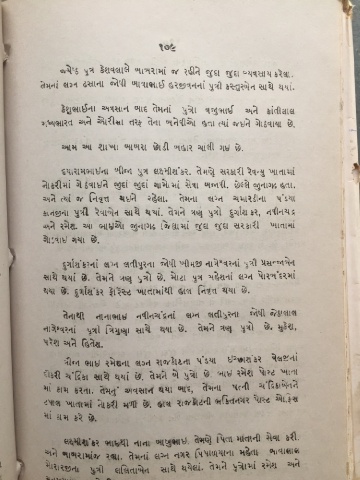 ૧૭૯
જ્યેષ્ઠ પુત્ર કેશવલાલે બાબરામાં જ રહીને જુદા જુદા વ્યવસાય કરેલા.
તેમનાં લગ્ન ઢસાના જોષી ભાયાભાઈ હરજીવનનાં પુત્રી કસ્તુરબેન સાથે થયાં.
કેશુભાઈના અવસાન બાદ તેમનાં પુત્રો બાબુભાઈ અને કાંતીલાલ
મધ્યભારત અને ઔરીસા તરફ તેના બનેવીઓ હતા ત્યાં જઇને ગોઠવાયા છે.
આમ આ શાખા બાબરા છોડી બહાર ચાલી ગઇ છે.
દયારામભાઇના બીજા પુત્ર લક્ષ્મીશંકર. તેમણે સરકારી રેવન્યુ ખાતામાં
નોકરીમાં ગોઠવાઇને જુદા જુદા ગામોમાં સેવા બજાવી. છેલ્લે જુનાગઢ હતા.
અને ત્યાં જ નિવૃત્ત થઇને રહેલા. તેમના લગ્ન ચમારડીના પંડયા
કાનજીના પુત્રી રેવાબેન સાથે થયાં. તેમને ત્રણ પુત્રો દુર્ગાશંકર, નવીનચંદ્ર
અને રમેશ. આ ભાઈઓ જુનાગઢ જિલ્લામાં જુદા જુદા સરકારી ખાતામાં
ગોઠવાઈ ગયા છે.
દુર્ગાશંકરનાં લગ્ન લતીપુરના જોષી ખીમજી નાગેશ્વરનાં પુત્રી પ્રસન્નબેન
સાથે થયાં છે. તેમને ત્રણ પુત્રો છે. મોટા પુત્ર મહેશનાં લગ્ન પોરબંદરમાં
થયા છે. દુર્ગાશંકર ફોરેસ્ટ ખાતામાંથી હાલ નિવૃત થયા છે.
તેનાથી નાનાભાઇ નવીનચંદ્રનાં લગ્ન લતીપુરના જોષી જેઠાલાલ
નાગેશ્વરનાં પુત્રી ત્રિગુણા સાથે થયા છે. તેમને ત્રણ પુત્રો છે, મુકેશ,
પરેશ અને હિતેશ.
ત્રીજા ભાઇ રમેશનાં લગ્ન રાજકોટના પંડયા ઇચ્છાશંકર વેલજીનાં
દીકરી ચંદ્રિકા સાથે થયાં છે. તેમને બે પુત્રો છે. ભાઇ રમેશ પોસ્ટ ખાતા
માં કામ કરતા. તેમનું અવસાન થયા બાદ, તેમના પત્ની ચંદ્રિકાબેનને
ટપાલ ખાતામાં નોકરી મળી છે. હાલ રાજકોટની ભક્તિનગર પોસ્ટ ઓફીસ
માં કામ કરે છે.
લક્ષ્મીશંકર ભાઇથી નાના ભાનુભાઈ. તેમણે પિતા માતાની સેવા કરી.
અને બાબરામાંજ રહ્યા. તેમનાં લગ્ન નગર પિપળીયાના મહેતા ભાવાલાલ
મોરારજીના પુત્રી લલિતાબેન સાથે થયેલાં. તેમને પુત્રોમાં રમેશ અને